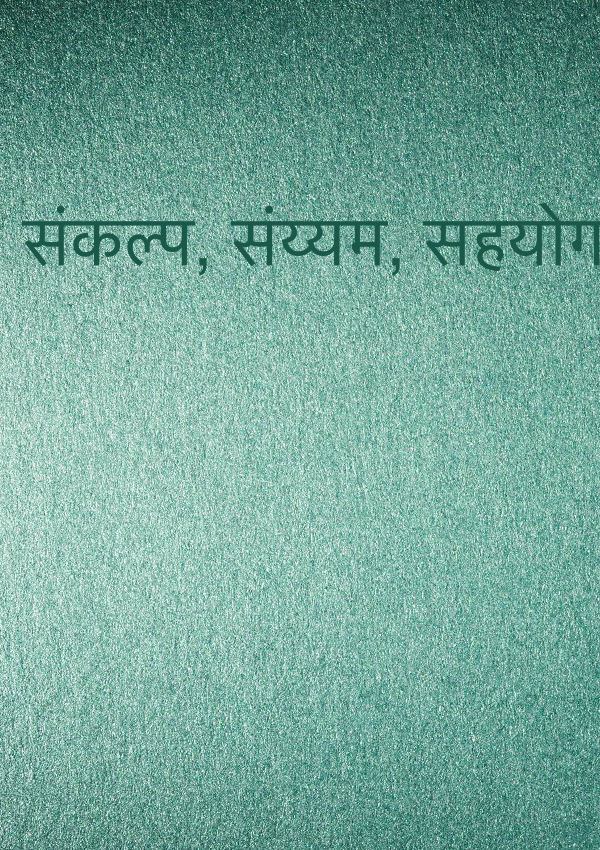 संकल्प, संय्यम, सहयोग